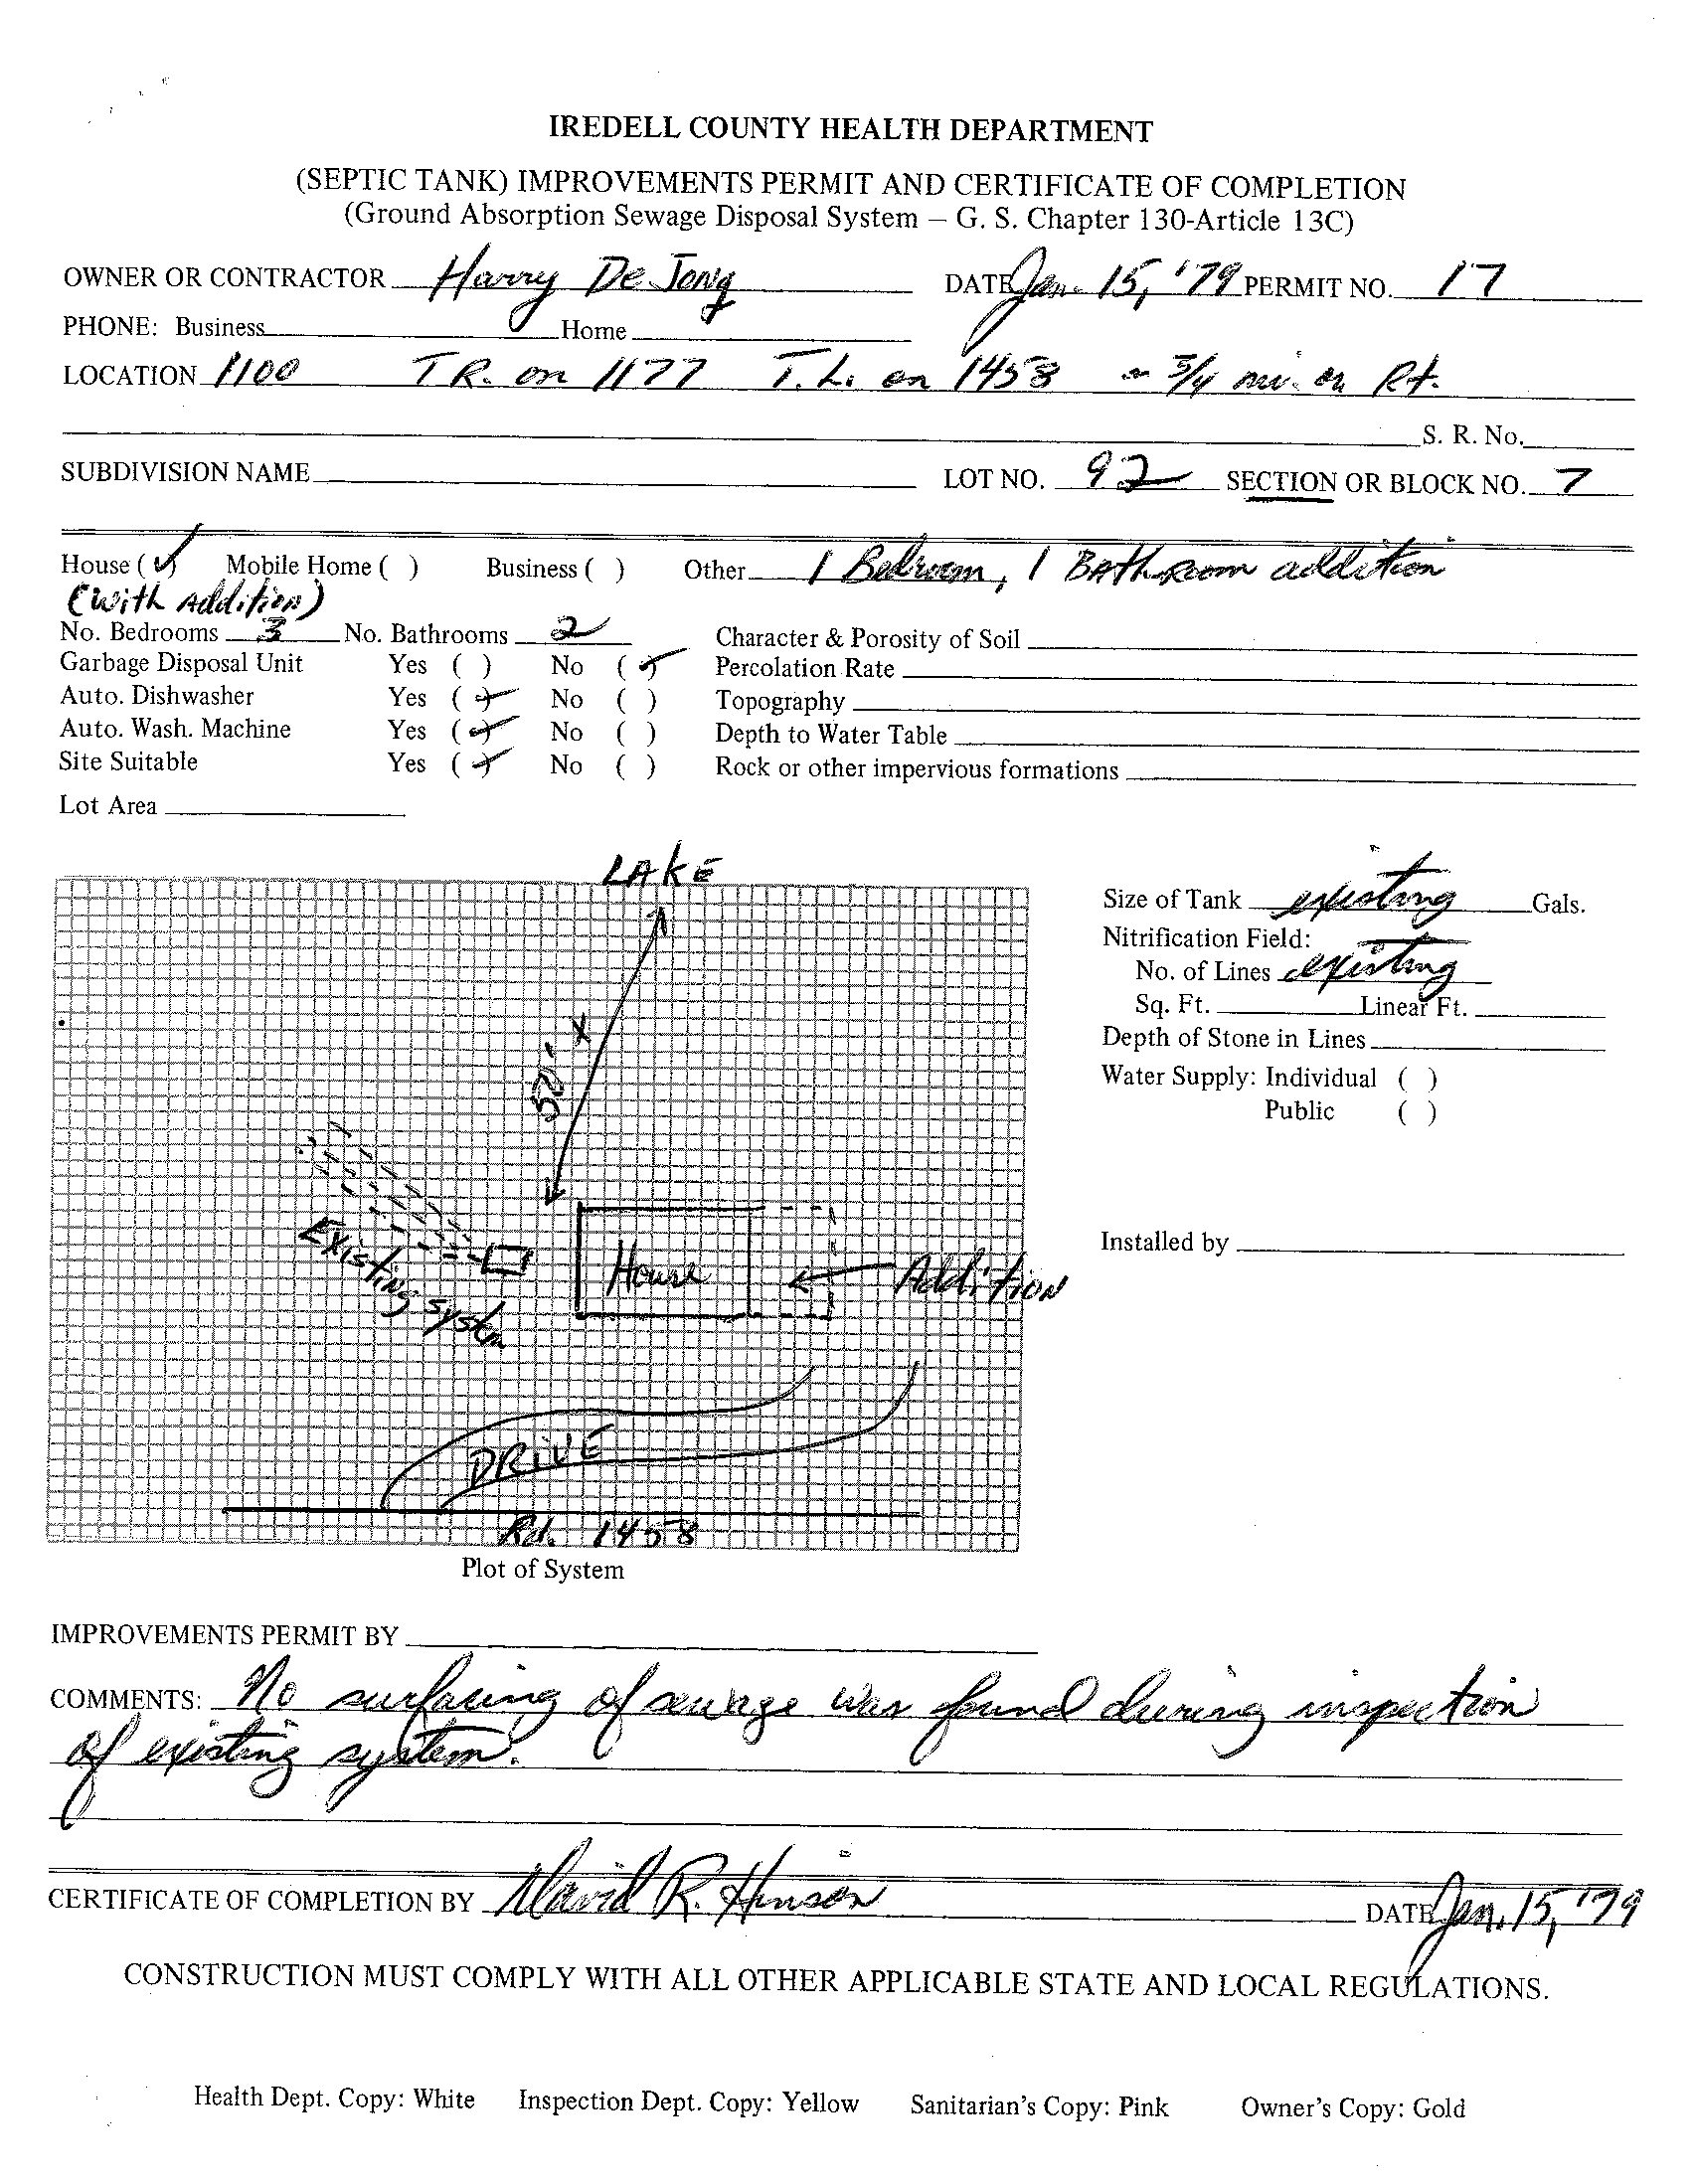 IREDELL COUNTY HEALTH DEPARTMENT
(SEPTIC TANK) IMPROVEMENTS PERMIT AND CERTIFICATE OF COMPLETION
(Ground Absorption Sewage Disposal System – G. S. Chapter 130-Article 13C)
OWNER OR CONTRACTOR Harry De Jong DATE Jan. 15, '79 PERMIT NO. 17
PHONE: Business Home
LOCATION 1100 T R. on 1177 T. L. on 1458 ~ 3/4 mi. on Rt.
S. R. No.
SUBDIVISION NAME LOT NO. 92 SECTION OR BLOCK NO. 7
House (✓) Mobile Home ( ) Business ( ) Other 1 Bedroom, 1 Bathroom addition
(with Addition)
No. Bedrooms 3 No. Bathrooms 2 Character & Porosity of Soil
Garbage Disposal Unit Yes ( ) No (✓) Percolation Rate
Auto. Dishwasher Yes (✓) No ( ) Topography
Auto. Wash. Machine Yes (✓) No ( ) Depth to Water Table
Site Suitable Yes (✓) No ( ) Rock or other impervious formations
Lot Area
LAKE
Size of Tank existing Gals.
Nitrification Field:
No. of Lines existing
Sq. Ft. Linear Ft.
Depth of Stone in Lines
Water Supply: Individual ( )
Public ( )
50' x
Existing system
House
Addition
Installed by
DRIVE
Rd. 1458
Plot of System
IMPROVEMENTS PERMIT BY
COMMENTS: No surfacing of sewage was found during inspection
of existing system.
CERTIFICATE OF COMPLETION BY David R. Hinson DATE Jan. 15, '79
CONSTRUCTION MUST COMPLY WITH ALL OTHER APPLICABLE STATE AND LOCAL REGULATIONS.
Health Dept. Copy: White Inspection Dept. Copy: Yellow Sanitarian's Copy: Pink Owner's Copy: Gold